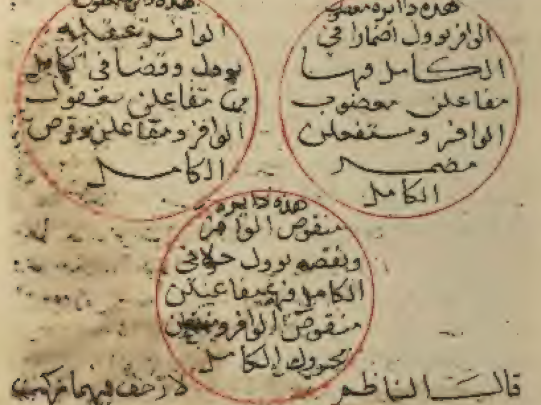 هذه دايرة معصوب
الوافر يوول اضمارا في
الكامل فيها
مفاعلن معصوب
الوافر ومستفعلن
مضمر
الكامل
هذه دايرة معقول
الوافر عقله
يوول وقصا في الكامل
مفاعلن معقول
الوافر ومفاعلن وقوص
الكامل
هذه دايرة
منقوص الوافر
ونقصه يوول خزلا في
الكامل فيها مفاعيل
منقوص الوافر
مخزول الكامل
قال الناظم
لا زحف فيهما تركب